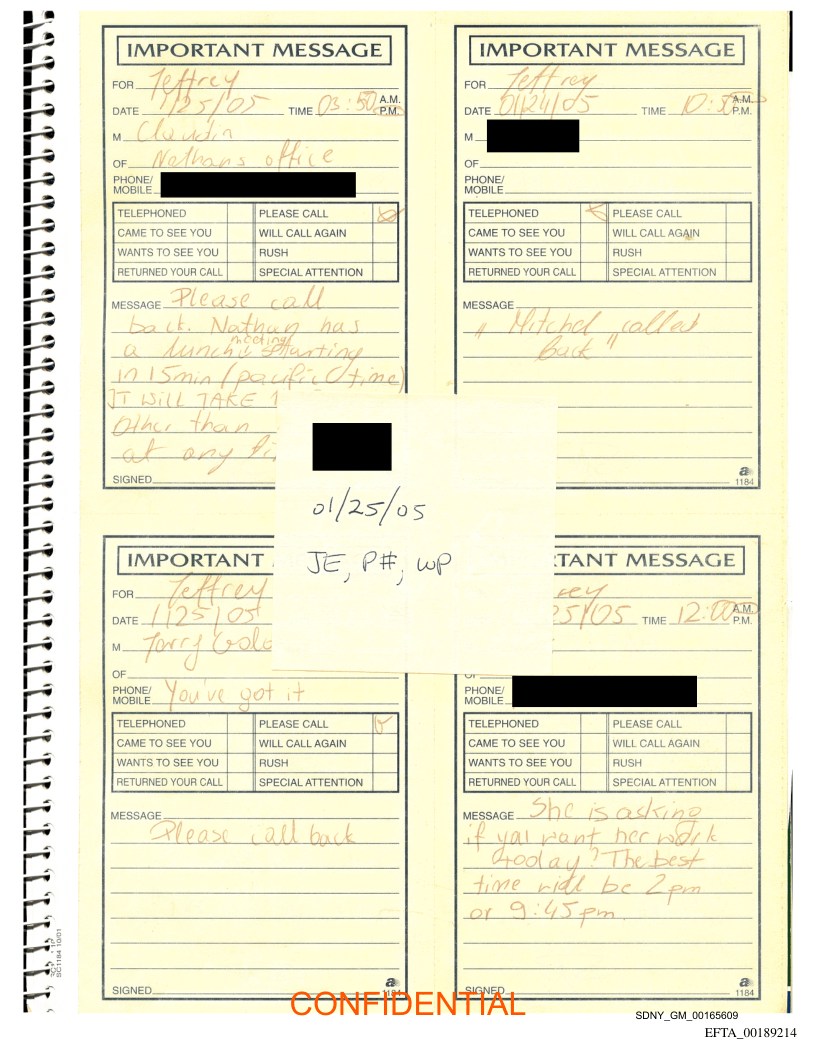 IMPORTANT MESSAGE
FOR Jeffrey
DATE 1/25/05 TIME 03:50 A.M. P.M.
M Claudin
OF Nathans office
PHONE/
MOBILE
TELEPHONED PLEASE CALL
CAME TO SEE YOU WILL CALL AGAIN
WANTS TO SEE YOU RUSH
RETURNED YOUR CALL SPECIAL ATTENTION
MESSAGE Please call
back. Nathan has
a lunch meeting starting
in 15min (pacific time)
IT WILL TAKE 1
Other than
at any
SIGNED
IMPORTANT MESSAGE
FOR Jeffrey
DATE 01/24/05 TIME 10:50 A.M. P.M.
M
OF
PHONE/
MOBILE
TELEPHONED PLEASE CALL
CAME TO SEE YOU WILL CALL AGAIN
WANTS TO SEE YOU RUSH
RETURNED YOUR CALL SPECIAL ATTENTION
MESSAGE
"Mitchel called
back"
SIGNED
a
1184
01/25/05
JE, P#, WP
IMPORTANT
FOR Jeffrey
DATE 1/25/05
M
OF
PHONE/
MOBILE You've got it
TELEPHONED PLEASE CALL
CAME TO SEE YOU WILL CALL AGAIN
WANTS TO SEE YOU RUSH
RETURNED YOUR CALL SPECIAL ATTENTION
MESSAGE
Please call back
SIGNED
a
1184
TANT MESSAGE
rey
25/05 TIME 12:00 A.M. P.M.
OF
PHONE/
MOBILE
TELEPHONED PLEASE CALL
CAME TO SEE YOU WILL CALL AGAIN
WANTS TO SEE YOU RUSH
RETURNED YOUR CALL SPECIAL ATTENTION
MESSAGE She is asking
if yal want her work
today? The best
time will be 2pm
or 9:45pm.
SIGNED
a
1184
SC1184 10/01
CONFIDENTIAL
SDNY_GM_00165609
EFTA_00189214